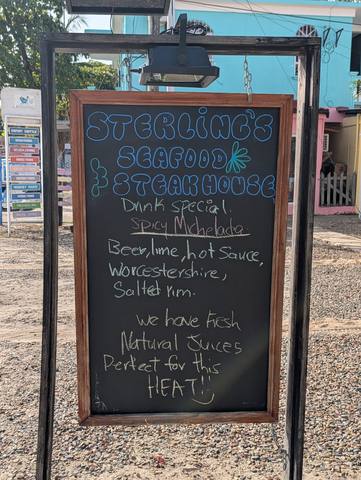 STERLING'S
SEAFOOD
& STEAKHOUSE
Drink special.
Spicy Michelada
Beer, lime, hot Sauce,
Worcestershire,
Salted rim.
We have Fresh
Natural Juices
Perfect for this
HEAT!!